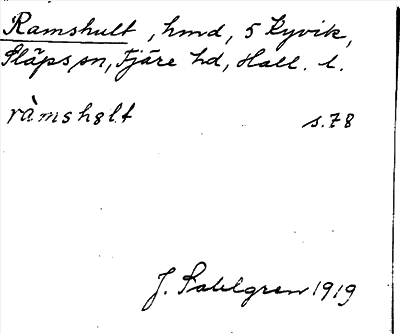 Ramshult, hmd, 5 Kyvik,
Släps sn, Fjäre hd, Hall. l.
ràmshəl.t s.78
J. Sahlgren 1919